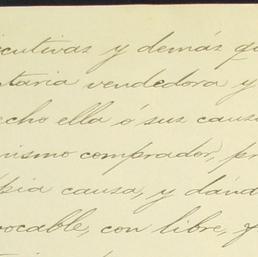 icutivas y demás qu
taria vendedora y
echo ella ó sus causa
mismo comprador, pr
opia causa, y dánd
vocable, con libre, f